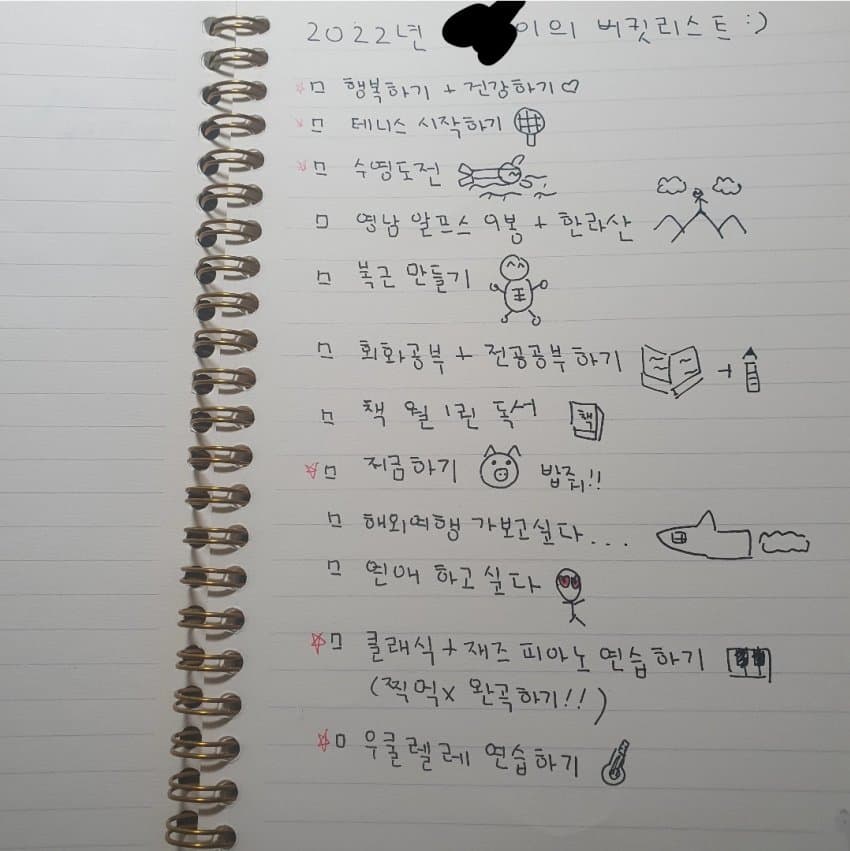 2022년 이의 버킷리스트 :)
행복하기 + 건강하기♡
테니스 시작하기
수영도전
영남 알프스 9봉 + 한라산
복근 만들기
회화공부 + 전공공부하기
책 월 1권 독서
책
저금하기 밥줘!!
해외여행 가보고싶다...
연애 하고 싶다
클래식 + 재즈 피아노 연습하기
(찍먹x 완곡하기!!)
우쿨렐레 연습하기